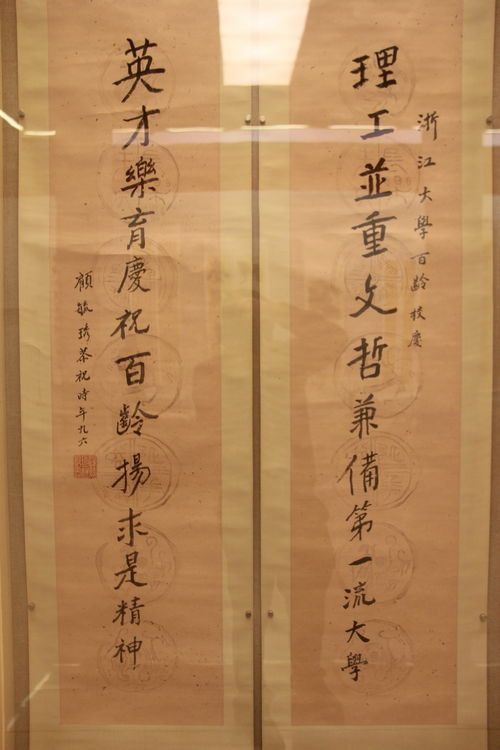 浙江大學百齡校慶
理工並重文哲兼備第一流大學
英才樂育慶祝百齡揚求是精神
顧毓琇恭祝時年九六